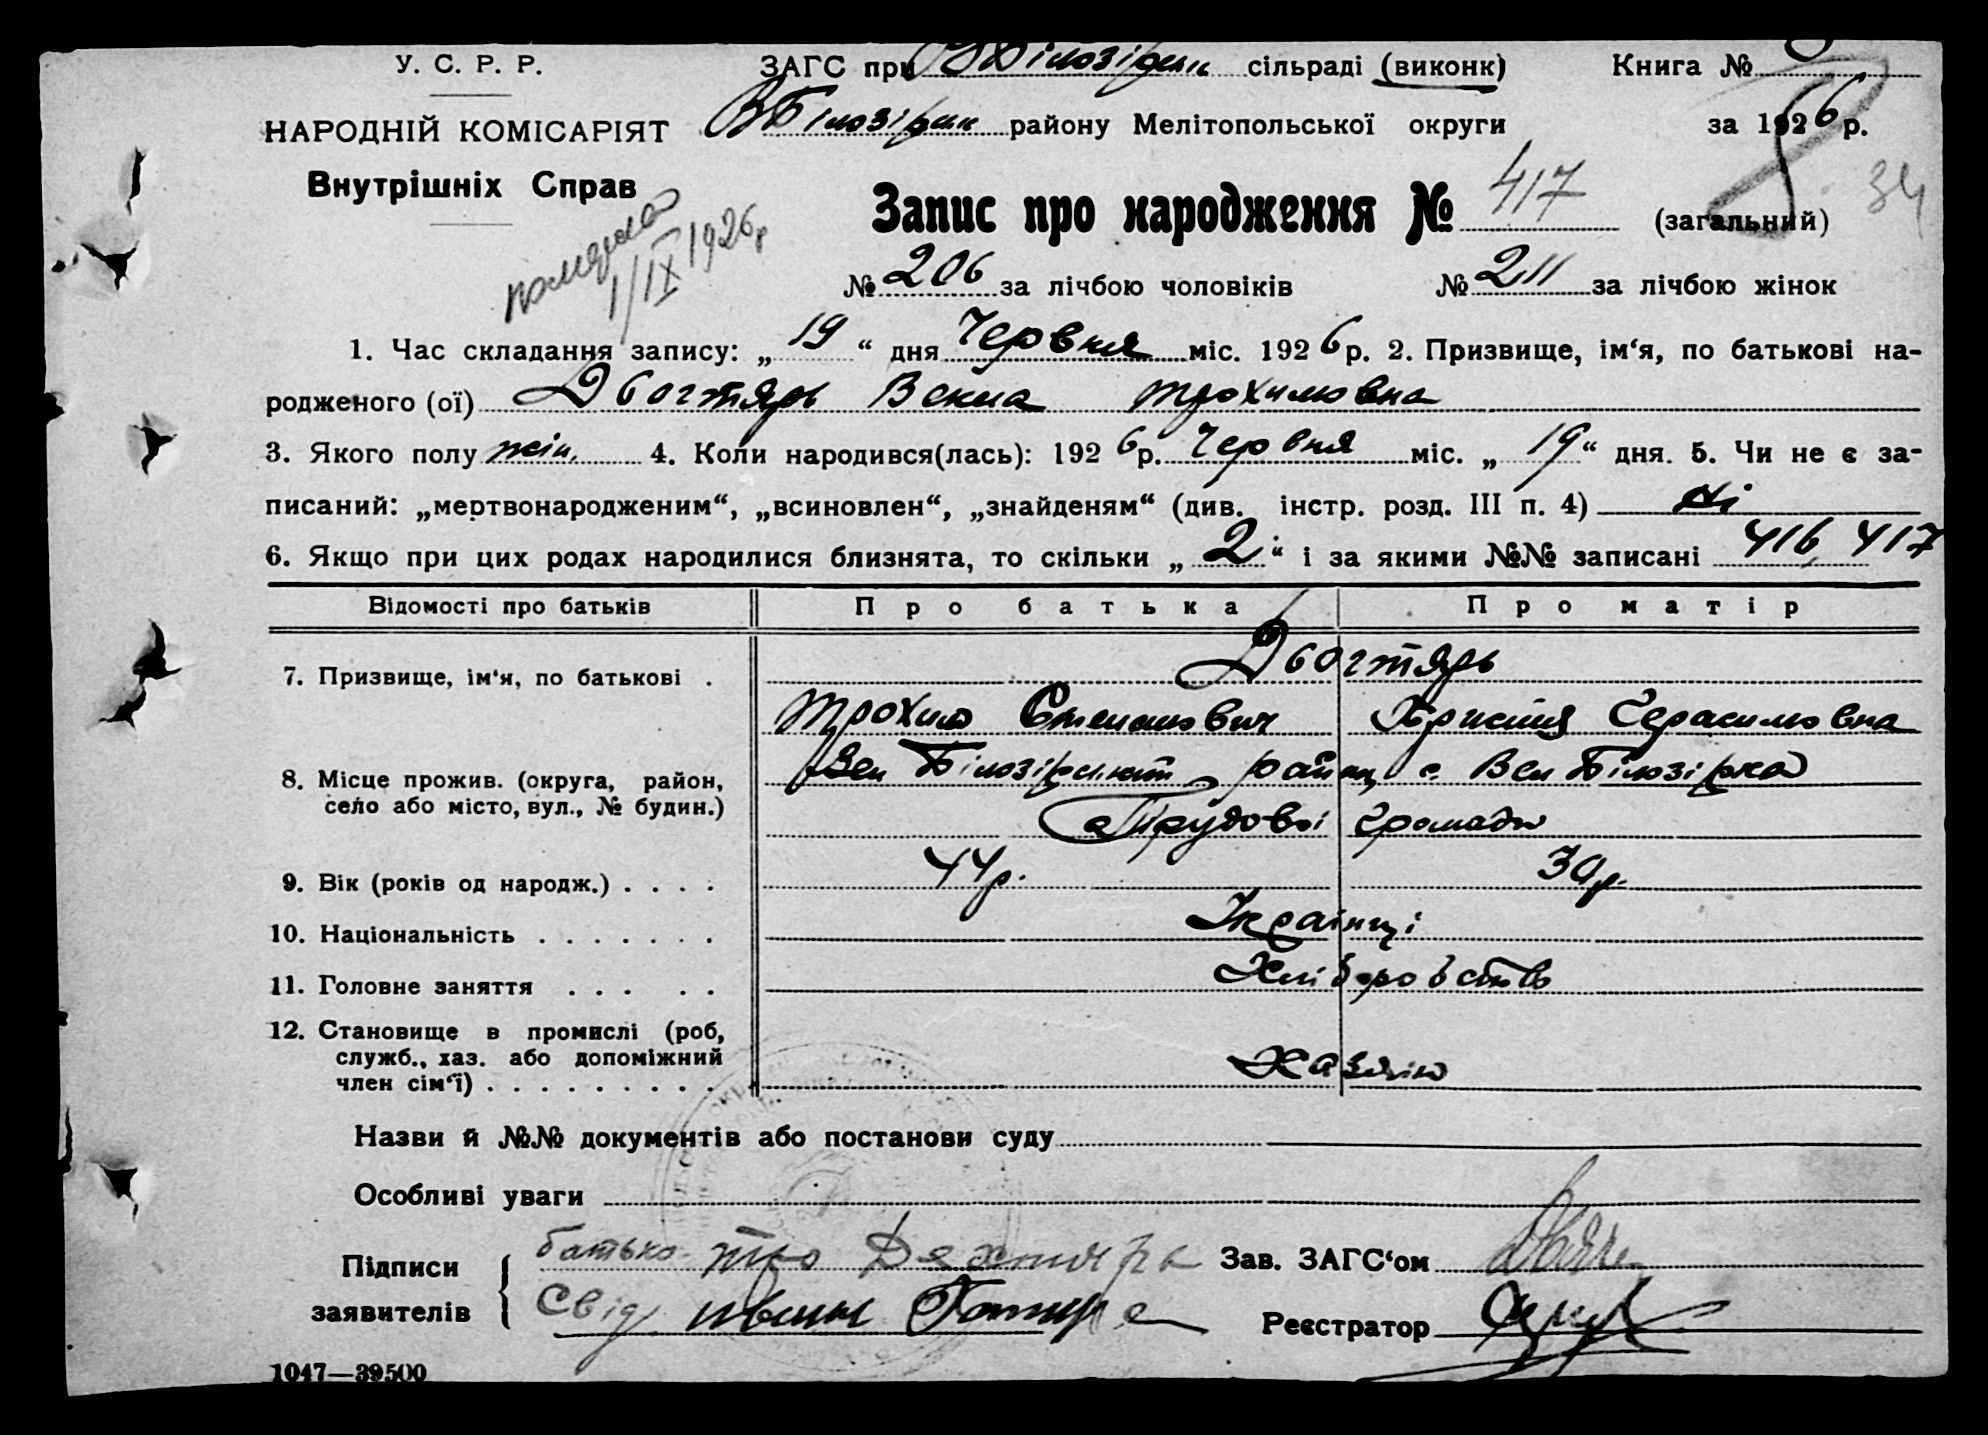 У. С. Р. Р.
ЗАГС при В Білозірськ сільраді (виконк)
Книга №
НАРОДНІЙ КОМІСАРІЯТ
В Білозірськ району Мелітопольської округи
за 1926 р.
Внутрішніх Справ
Запис про народження № 417 (загальний)
34
померла
1/IX 1926 р
№ 206 за лічбою чоловіків
№ 211 за лічбою жінок
1. Час складання запису: „ 19 “ дня Червня міс. 1926 р. 2. Призвище, ім‘я, по батькові на-
родженого (ої) Двогтярь Векла Трохимовна
3. Якого полу жін. 4. Коли народився(лась): 1926 р. Червня міс. „ 19 “ дня. 5. Чи не є за-
писаний: „мертвонародженим“, „всиновлен“, „знайденям“ (див. інстр. розд. III п. 4) Ні
6. Якщо при цих родах народилися близнята, то скільки „ 2 “ і за якими №№ записані 416, 417
Відомості про батьків
Про батька
Про матір
7. Призвище, ім‘я, по батькові .
Двогтярь
Трохим Степанович
Христія Герасимовна
8. Місце прожив. (округа, район,
село або місто, вул., № будин.)
Вел Білозірськ район с. Вел Білозірка
Трудової громади
9. Вік (років од народж.) . . . .
44 р.
30 р.
10. Національність . . . . . . .
Українці
11. Головне заняття . . . . .
Хліборобство
12. Становище в промислі (роб,
служб., хаз. або допоміжний
член сім‘ї) . . . . . . . . .
Хазяін
Назви й №№ документів або постанови суду
Особливі уваги
Підписи
заявителів
батько Тро Дехтярь
Свід
Зав. ЗАГС‘ом
Реєстратор
1047—39500